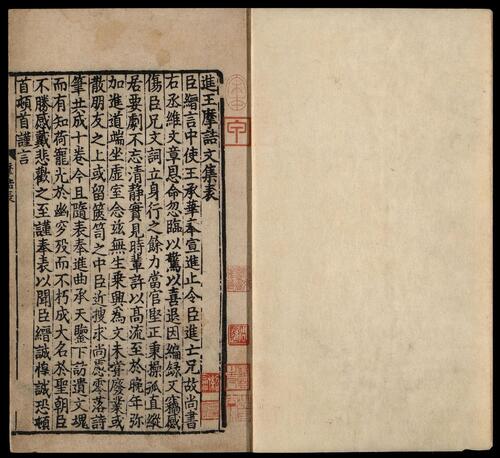 進王摩詰文集表
臣縉言中使王承華奉宣進止令臣進亡兄故尚書
右丞維文章恩命忽臨以驚以喜退因編錄又竊感
傷臣兄文詞立身行之餘力當官堅正秉操孤直縱
居要劇不忘清靜實見時輩許以高流至於晚年弥
加進道端坐虛室念茲無生乗興為文未甞廢業或
散朋友之上或留篋笥之中臣近搜求尚慮零落詩
筆共成十卷今且隨表奉進曲承天鑒下訪遺文魂
而有知荷寵光於幽穸殁而不朽成大名於聖朝臣
不勝感戴悲歡之至謹奉表以聞臣縉誠惶誠恐頓
首頓首謹言